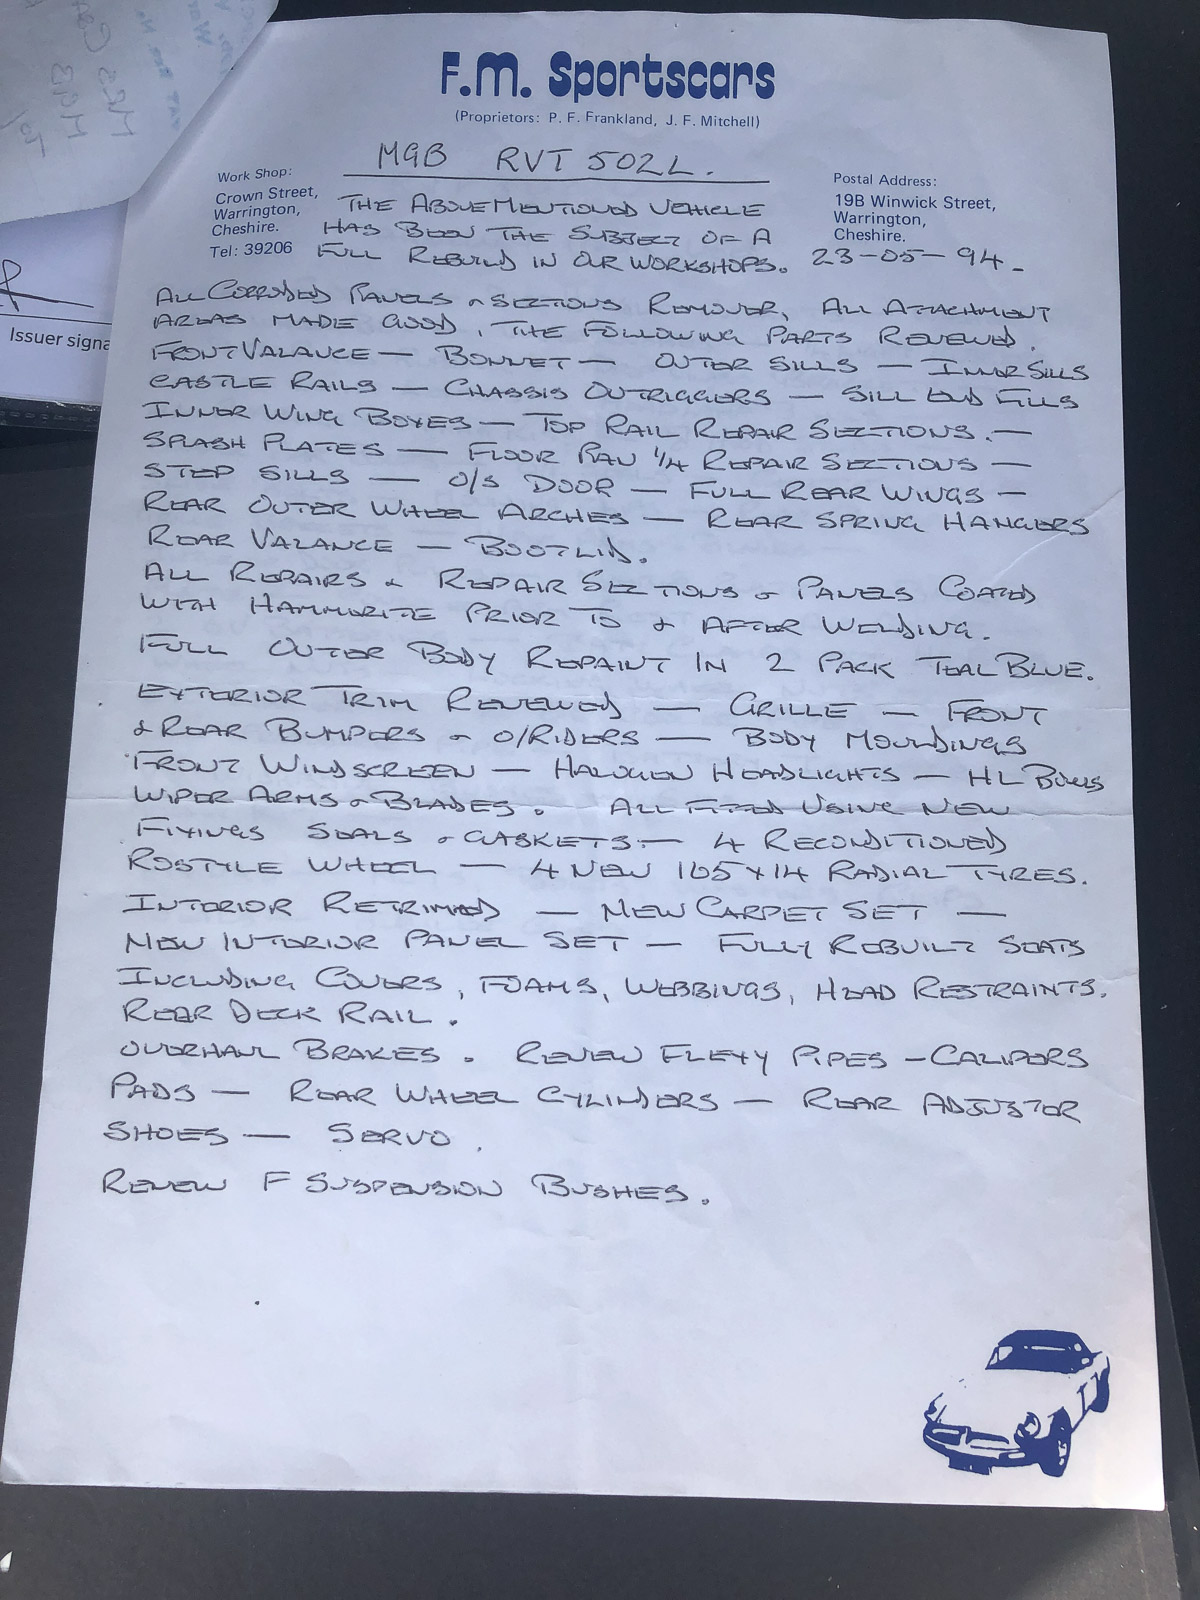 F.M. Sportscars
(Proprietors: P. F. Frankland, J. F. Mitchell)
MGB RVT 502L.
Work Shop:
Crown Street,
Warrington,
Cheshire.
Tel: 39206
Postal Address:
19B Winwick Street,
Warrington,
Cheshire.
THE ABOVEMENTIONED VEHICLE
HAS BEEN THE SUBJECT OF A
FULL REBUILD IN OUR WORKSHOPS. 23-05-94.
ALL CORRODED PANELS & SECTIONS REMOVED, ALL ATTACHMENT
AREAS MADE GOOD, THE FOLLOWING PARTS RENEWED.
FRONT VALANCE — BONNET — OUTER SILLS — INNER SILLS
CASTLE RAILS — CHASSIS OUTRIGGERS — SILL END FILLS
INNER WING BOXES — TOP RAIL REPAIR SECTIONS. —
SPLASH PLATES — FLOOR PAN 1/4 REPAIR SECTIONS —
STEP SILLS — O/S DOOR — FULL REAR WINGS —
REAR OUTER WHEEL ARCHES — REAR SPRING HANGERS
REAR VALANCE — BOOTLID.
ALL REPAIRS & REPAIR SECTIONS & PANELS COATED
WITH HAMMERITE PRIOR TO & AFTER WELDING.
FULL OUTER BODY REPAINT IN 2 PACK TEAL BLUE.
EXTERIOR TRIM RENEWED — GRILLE — FRONT
& REAR BUMPERS & O/RIDERS — BODY MOULDINGS
FRONT WINDSCREEN — HALOGEN HEADLIGHTS — HL BOWLS
WIPER ARMS & BLADES. ALL FITTED USING NEW
FIXINGS SEALS & GASKETS. — 4 RECONDITIONED
ROSTYLE WHEEL — 4 NEW 165 x 14 RADIAL TYRES.
INTERIOR RETRIMMED — NEW CARPET SET —
NEW INTERIOR PANEL SET — FULLY REBUILT SEATS
INCLUDING COVERS, FOAMS, WEBBINGS, HEAD RESTRAINTS.
REAR DECK RAIL.
OVERHAUL BRAKES. RENEW FLEXY PIPES — CALIPERS
PADS — REAR WHEEL CYLINDERS — REAR ADJUSTOR
SHOES — SERVO.
RENEW F SUSPENSION BUSHES.
Issuer signa